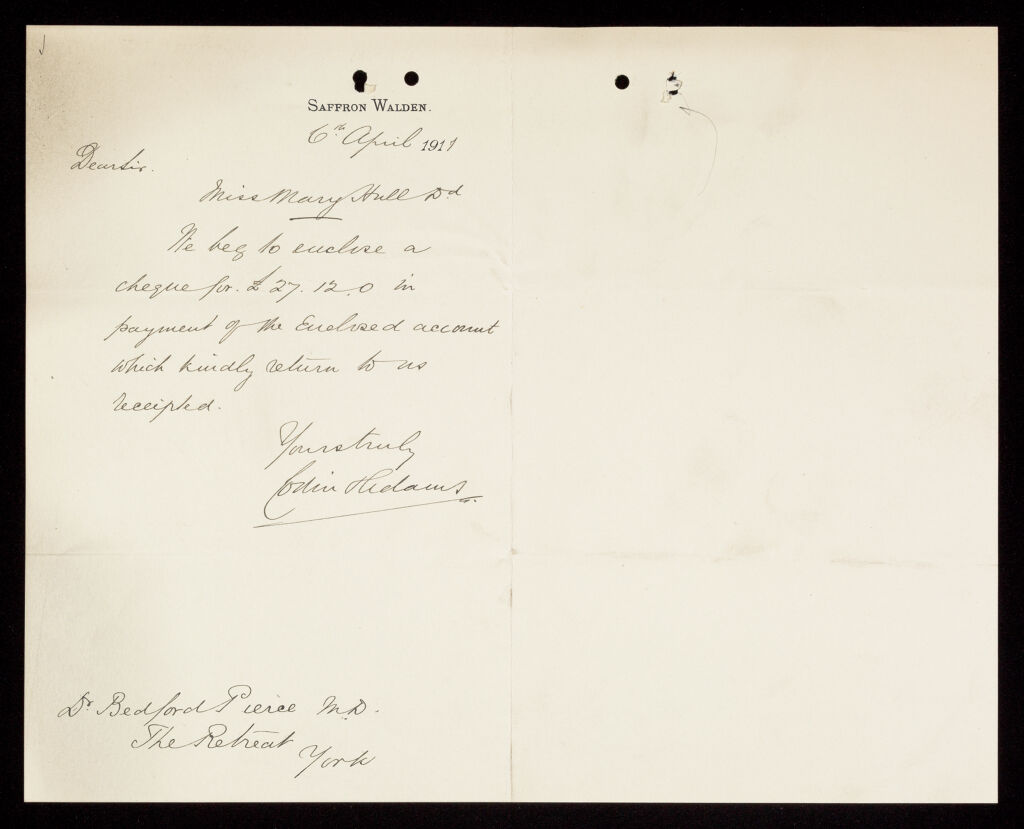 SAFFRON WALDEN.
6th April 1911
Dear Sir.
Miss Mary Hull Dd
We beg to enclose a
cheque for. £27.12.0 in
payment of the Enclosed account
which kindly return to us
receipted.
Yours truly
Dr Bedford Pierce M.D.
The Retreat
York